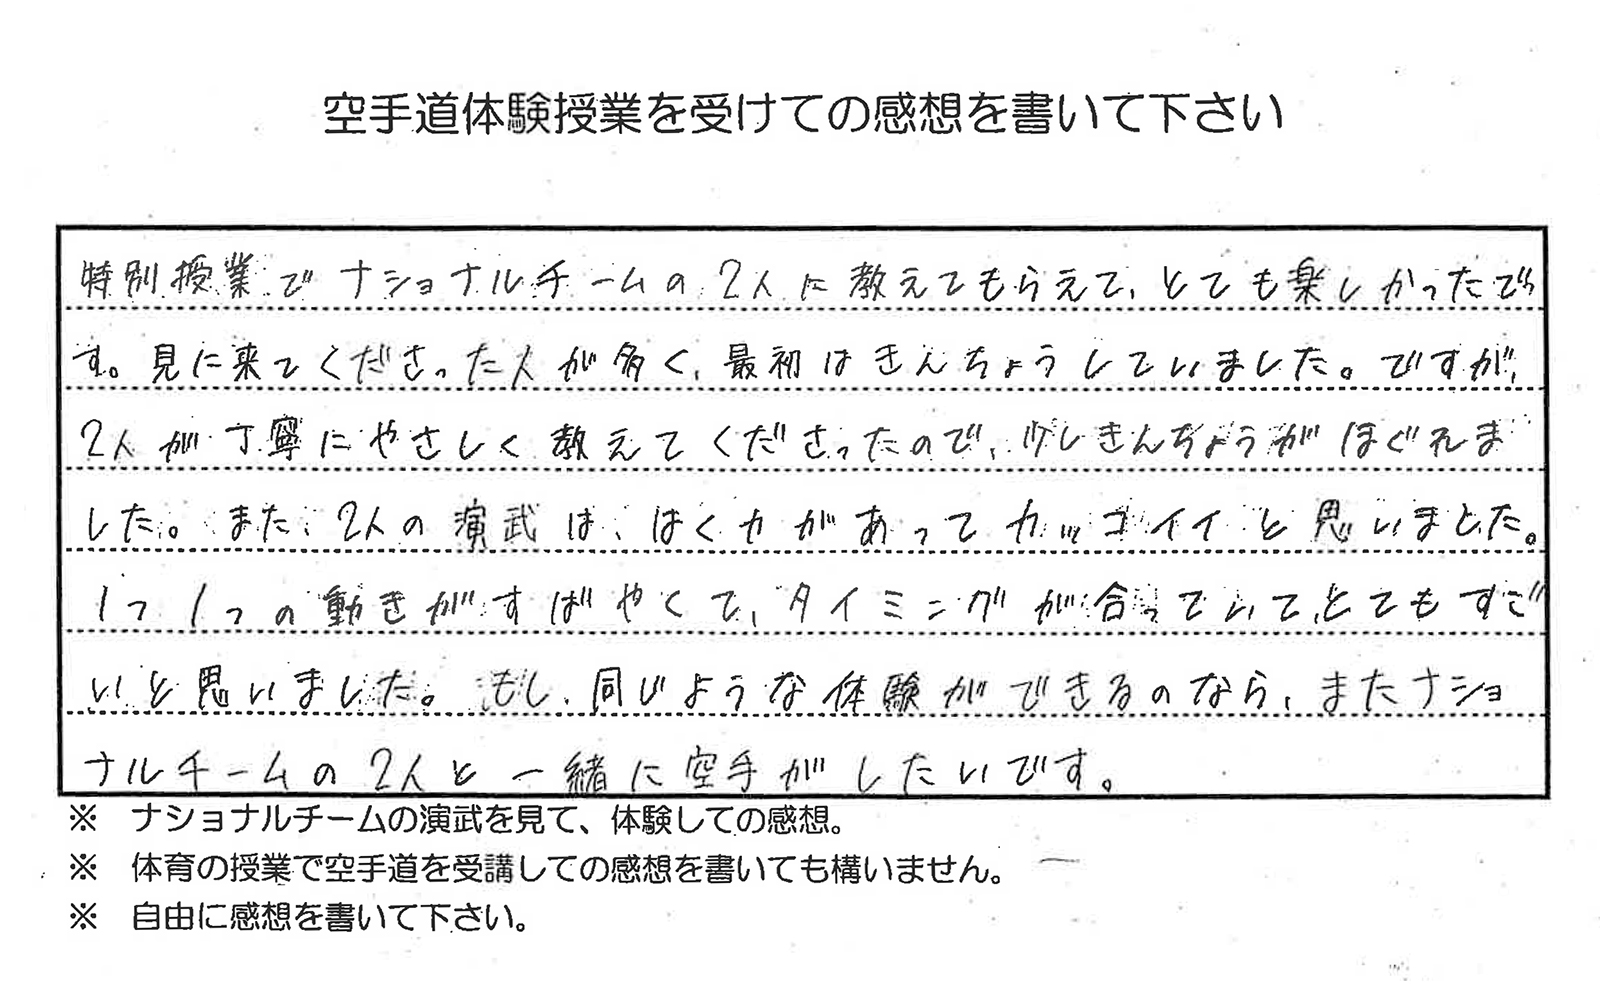 空手道体験授業を受けての感想を書いて下さい
特別授業でナショナルチームの2人に教えてもらえて、とても楽しかったで
す。見に来てくださった人が多く、最初はきんちょうしていました。ですが、
2人が丁寧にやさしく教えてくださったので、少しきんちょうがほぐれま
した。また、2人の演武は、はく力があってカッコイイと思いました。
1つ1つの動きがすばやくて、タイミングが合っていて、とてもすご
いと思いました。もし、同じような体験ができるのなら、またナショ
ナルチームの2人と一緒に空手がしたいです。
※ ナショナルチームの演武を見て、体験しての感想。
※ 体育の授業で空手道を受講しての感想を書いても構いません。
※ 自由に感想を書いて下さい。